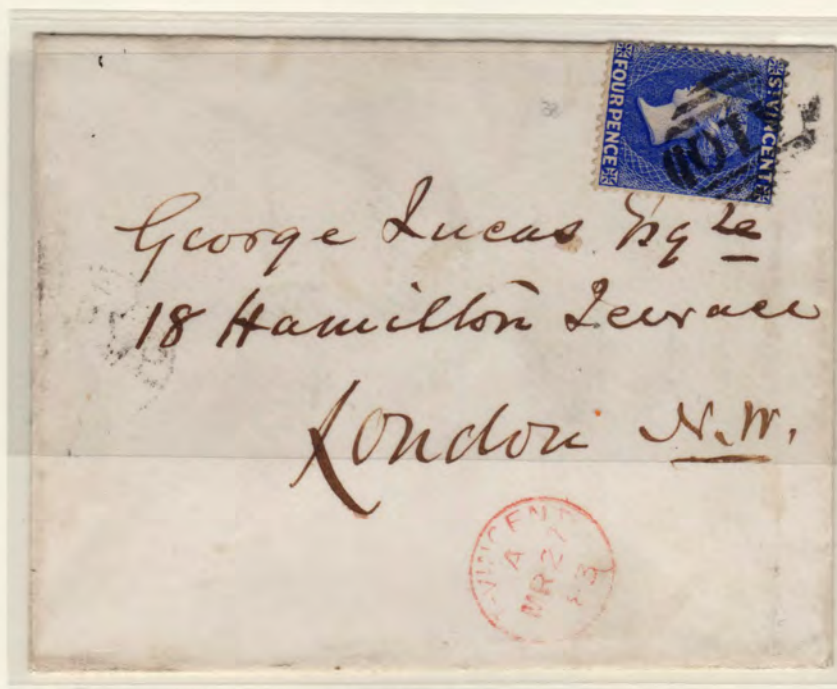 FOUR PENCE
ST. VINCENT
A10
George Lucas Esqre
18 Hamilton Terrace
London N.W.
VINCENT
A
MR 27
83